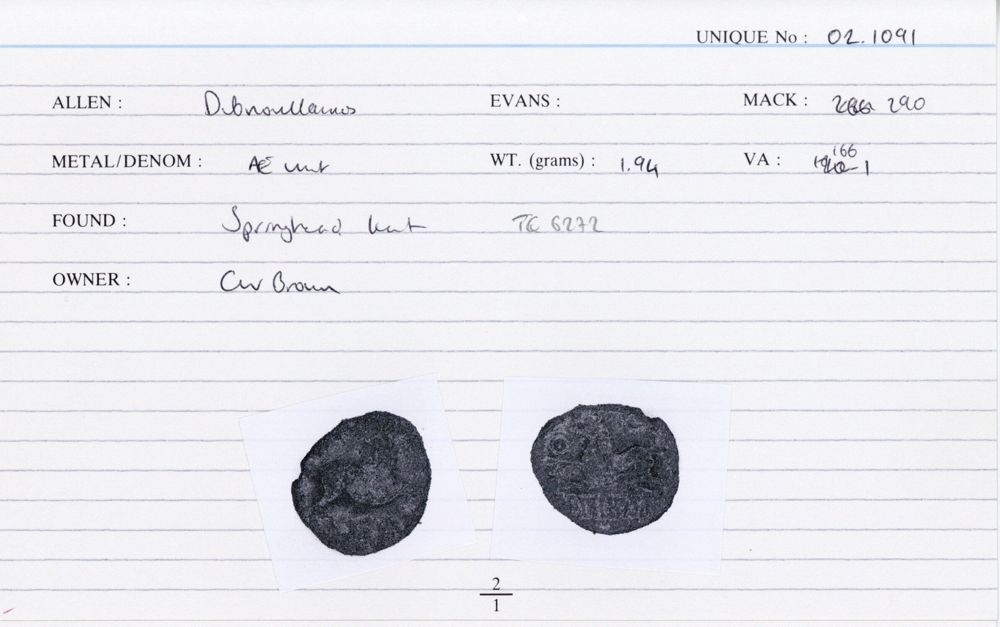 UNIQUE No : 02.1091
ALLEN : Dubnovellaunos EVANS : MACK : 290
METAL/DENOM : AE unit WT. (grams) : 1.94 VA : 166 1
FOUND : Springhead Kent TC 6272
OWNER : CW Brown
2
1